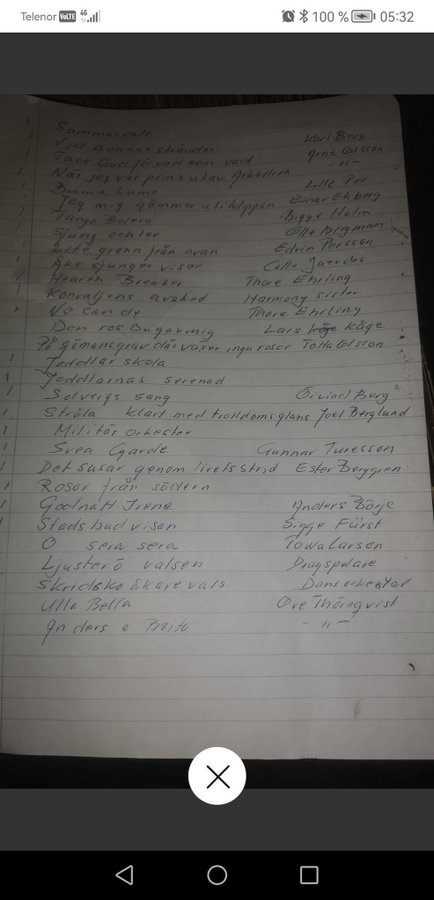 Telenor VoLTE 4G 100 % 05:32
Sommarvals Karl Berg
Vid Donaus stränder Arne Olsson
Tack Gud för ved som vart -"-
När jag var prins utav Arkadien
Bjume Lume Lille Per
Jag mig gömmer uti klippan Einar Ekberg
Tange Bolero Bigge Holm
Sjung och le Olle Bergman
Lite grann från ovan Edvin Persson
Åke sjunger visor
Hearth Breaker Thore Ehrling
Konvaljens avsked Harmony sister
No can dy Thore Ehrling
Den ros Du gav mig Lars Kåge
På gömansgrav där växer inga rosor Totta Olsson
Jeddlar skola
Jeddlarnas serenad
Solveigs sång Öivind Berg
Stråla klart med trolldomsglans Joel Berglund
Militär orkester
Svea Garde Gunnar Turesson
Det susar genom livets strid Ester Berggren
Rosor från södern
Godnatt Irene Anders Börje
Stadsbudvisan Sigge Fürst
O sera sera Towa Carson
Ljusterö valsen Dragspelare
Skridskoåkarevals Dansorkester
Ulla Bella Ove Thörnqvist
Anders o Britta -"-